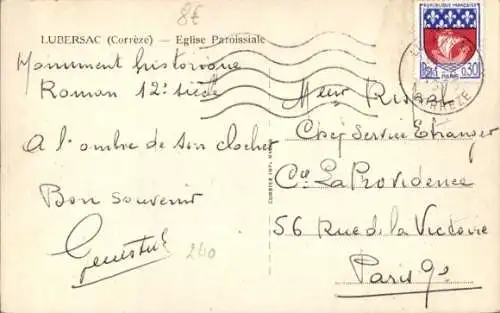 8€
LUBERSAC (Corrèze) — Eglise Paroissiale
Monument historique
Roman 12e siècle
A l'ombre de son clocher
Bon souvenir
240
REPUBLIQUE FRANÇAISE
PARIS
0,30
CORREZE
Chef Service Etranger
Cie La Providence
56 Rue de la Victoire
Paris 9e